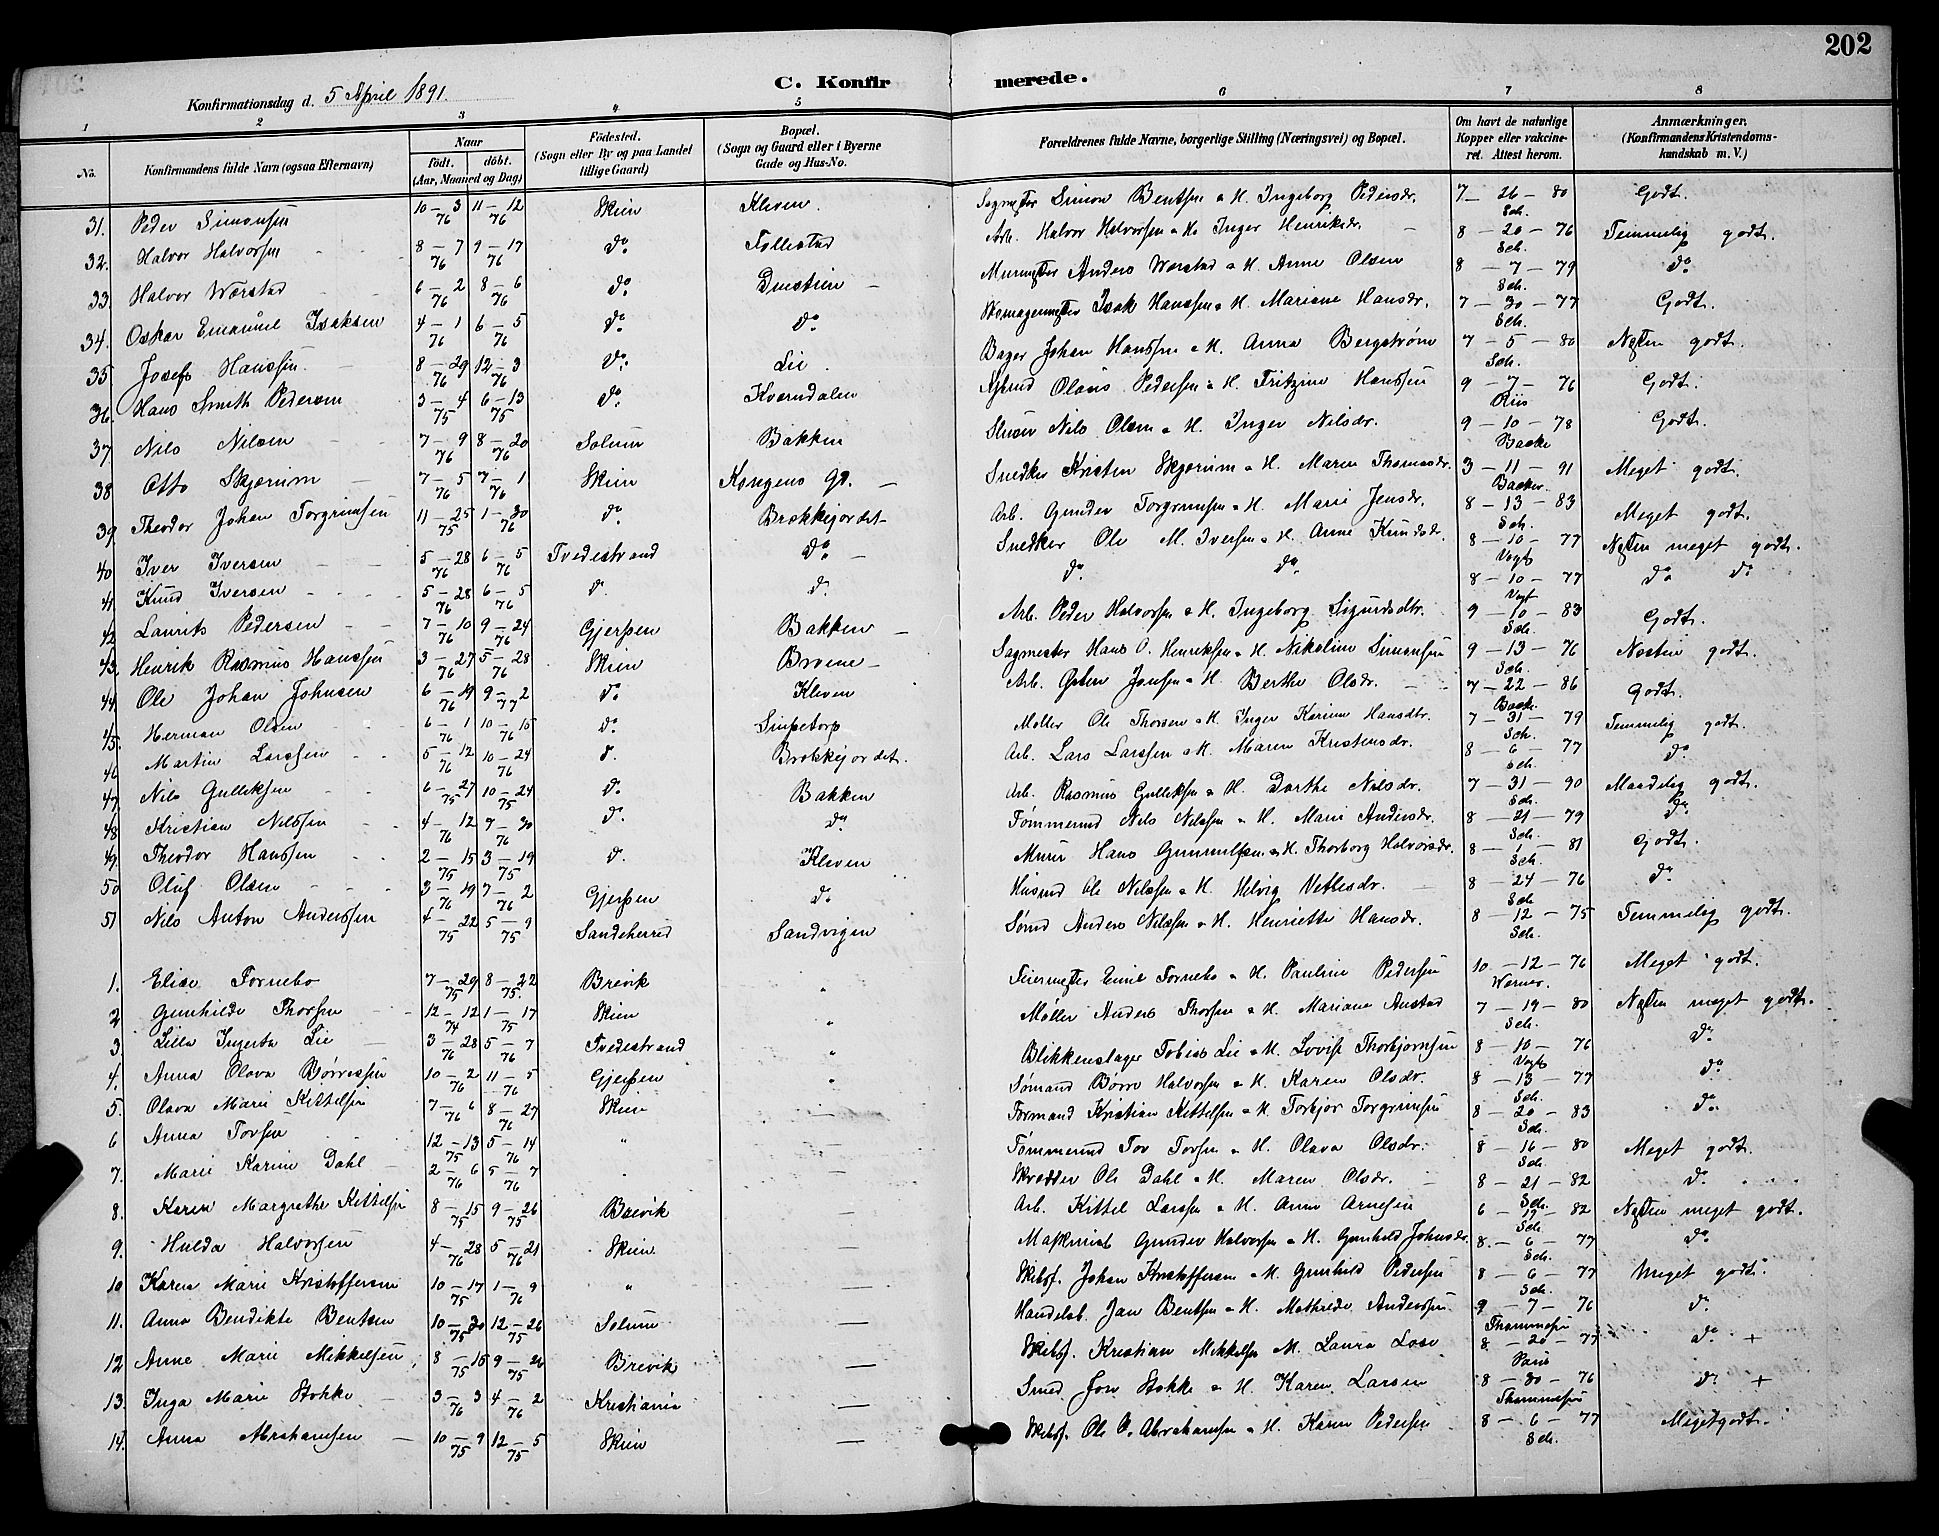 202
C. Konfirmerede.
Konfirmationsdag d. 5 April 1891.
1 2 3 4 5 6 7 8
No. Konfirmandens fulde Navn (ogsaa Efternavn) Naar født. døbt. (Aar, Maaned og Dag) Fødested. (Sogn eller By og paa Landet tillige Gaard) Bopæl. (Sogn og Gaard eller i Byerne Gade og Hus-No. Forældrenes fulde Navne, borgerlige Stilling (Næringsvei) og Bopæl. Om havt de naturlige Kopper eller vakcineret. Attest herom. Anmærkninger. (Konfirmandens Kristendomskundskab m. V.)
31. Peder Simonsen 10–3 76 11–12 76 Skien Kleven. Sagmester Simon Bentsen & H. Ingeborg Pedersdr. 7–26–80 Sch. Godt.
32. Halvor Halvorsen 8–7 76 9–17 76 do Follestad Arb. Halvor Halvorsen & H. Inger Henriksdr. 8–20–76 Sch. Temmelig godt.
33. Halvor Wærstad 6–2 76 8–6 76 do Murmester Anders Wærstad & H. Anne Olsen 8–7–79 Sch. do
34. Oskar Emanuel Isaksen 4–1 76 6–5 76 do do Skomagermester Isak Hanssen & H. Mariane Hansdr. 7–30–77 Sch. Godt.
35 Josef Hanssen 8–29 76 12–3 76 do Lie Bager Johan Hanssen & H. Anna Bergstrøm 7–5–80 Sch. Næsten godt.
36. Hans Smith Pedersen 3–4 75 6–13 75 do Kverndalen Olaus Pedersen & H. Fritzine Hanssen 9–7–76 Riis Godt.
37 Nils Nilsen 7–9 76 8–20 76 Solum Bakken Nils Olsen & H. Inger Nilsdr. 9–10–78 Backe Godt.
38 Otto Skjørum 7–5 76 7–1 76 Skien Kongens Gd. Snedker Kristen Skjørum & H. Maren Thomasdr. 3–11–91 Backer Meget godt.
39. Theodor Johan Torgrimsen 11–25 75 1–30 76 do Brækkejordet Arb. Gunder Torgrimsen & H. Marie Jensdr. 8–13–83 Sch. Meget godt.
40 Iver Iversen 5–28 76 6–5 76 Tvedestrand do Snedker Ole M. Iversen & H. Anne Knudsdr. 8–10–77 Vogt Næsten meget godt.
41. Knud Iversen 5–28 76 6–5 76 do do do do 8–10–77 Vogt do do
42 Laurits Pedersen 7–10 76 9–24 76 Gjerpen Bakken Arb. Peder Halvorsen & H. Ingeborg Sigurdsdtr. 9–10–83 Sch. Godt.
43. Henrik Rasmus Hanssen 3–27 76 5–28 76 Skien Broene Sagmester Hans O. Henriksen & H. Nikoline Simonsen 9–13–76 Sch. Næsten godt.
44 Ole Johan Johnsen 6–19 76 9–2 77 do Kleven Arb. Jonsen & H. Berthe Olsdr. 7–22–86 Back. Godt.
45. Herman Olsen 6–1 76 10–15 76 do Møller Ole Thorsen & H. Inger Karine Hansdtr. 7–31–79 Sch. Temmelig godt.
46 Martin Larssen 5–12 76 10–24 76 do Brækkejordet. Arb. Lars Larssen & H. Maren Kristensdr. 8–6–77 Sch. do
47 Nils Gulliksen 6–27 75 10–24 75 do Bakken Arb. Rasmus Gulliksen & H. Dorthe Nilsdr. 7–31–90 Sch. Maadelig godt.
48 Kristian Nilssen 4–12 76 7–30 76 do do Tømmermd Nils Nilssen & H. Marie Andersdr. 8–21–79 Sch. do
49 Theodor Hanssen 2–15 75 3–19 75 do Kleven Murer Hans Gunnulfsen & H. Thorborg Halvorsdr. 8–1–81 Sch. Godt.
50 Oluf Olsen 3–19 76 7–2 76 Gjerpen do Husmd Ole Nilssen & H. Helvig Vetlesdr. 8–24–76 Sch do
51 Nils Anton Anderssen 4–22 75 5–9 75 Sandeherred Sandvigen Sømd Anders Nilssen & H. Henriette Hansdr. 8–12–75 Sch. Temmelig godt.
1. Elise Fornebo 7–29 75 8–22 75. Brevik " Feiermester Emil Fornebo & H. Pauline Pedersen 10–12–76 Werner. Meget godt.
2 Gunhilde Thorsen 12–12 74 1–17 75 Skien " Møller Anders Thorsen & H. Mariane Austad 7–19–80 Sch. Næsten meget godt.
3. Lilla Ingerta Lie 3–28 76 5–7 76 Tvedestrand " Blikkenslager Tobias Lie & H. Lovise Thorbjørnsen 8–10–76 Vogt do
4. Anna Olava Børresen 10–2 76 11–5 76 Gjerpen " Sømand Børre Halvorsen & H. Karen Olsdr. 8–13–77 Sch. do
5. Olava Marie Kittelsen 7–6 76 8–27 76 Skien — Formand Kristian Kittelsen & H. Torbjør Torgrimsen 8–20–83 Sch. do
6 Anna Torsen 12–13 75 5–14 76 " — Tømmermd Tor Torsen & H. Olava Olsdr. 8–16–80 Sch. Meget godt.
7. Marie Karine Dahl 2–6 76 5–7 76 " — Skrædder Ole Dahl & H. Maren Olsdr. 8–21–82 Sch. do
8. Karen Margrethe Kittelsen 8–15 75 9–26 75 Brevik — Arb. Kittel Larssen & H. Anne Arnesen 6–19–82 Sch. Næsten meget godt.
9. Hulda Halvorsen 4–28 76 5–21 76 Skien — Maskinist Gunder Halvorsen & H. Gunhild Johnsdr. 8–6–77 Sch. do
10 Karen Marie Kristoffersen 10–17 75 1–9 76 " — Skibsf. Johan Kristoffersen & H. Gunhild Pedersen 8–6–77 Sch. Meget godt.
11. Anna Bendikte Bentsen 10–30 75 12–26 75 Solum — Handelsb. Jan Bentsen & H. Mathilde Anderssen 9–7–76 Thommesen do
12 Anne Marie Mikkelsen 8–15 75 9–26 75 Brevik — Skibsf. Kristian Mikkelsen & H. Laura 8–20–77 do +
13. Inga Marie Stokke 3–3 76 4–2 76 Kristiania — Smed Jon Stokke & H. Karen Larsen 8–30–76 Thommesen do +
14. Anna Abrahamsen 10–9 75 12–5 75 Skien — Skibsf. Ole O. Abrahamsen & H. Karen Pedersen 8–6–77 Sch. Meget godt.